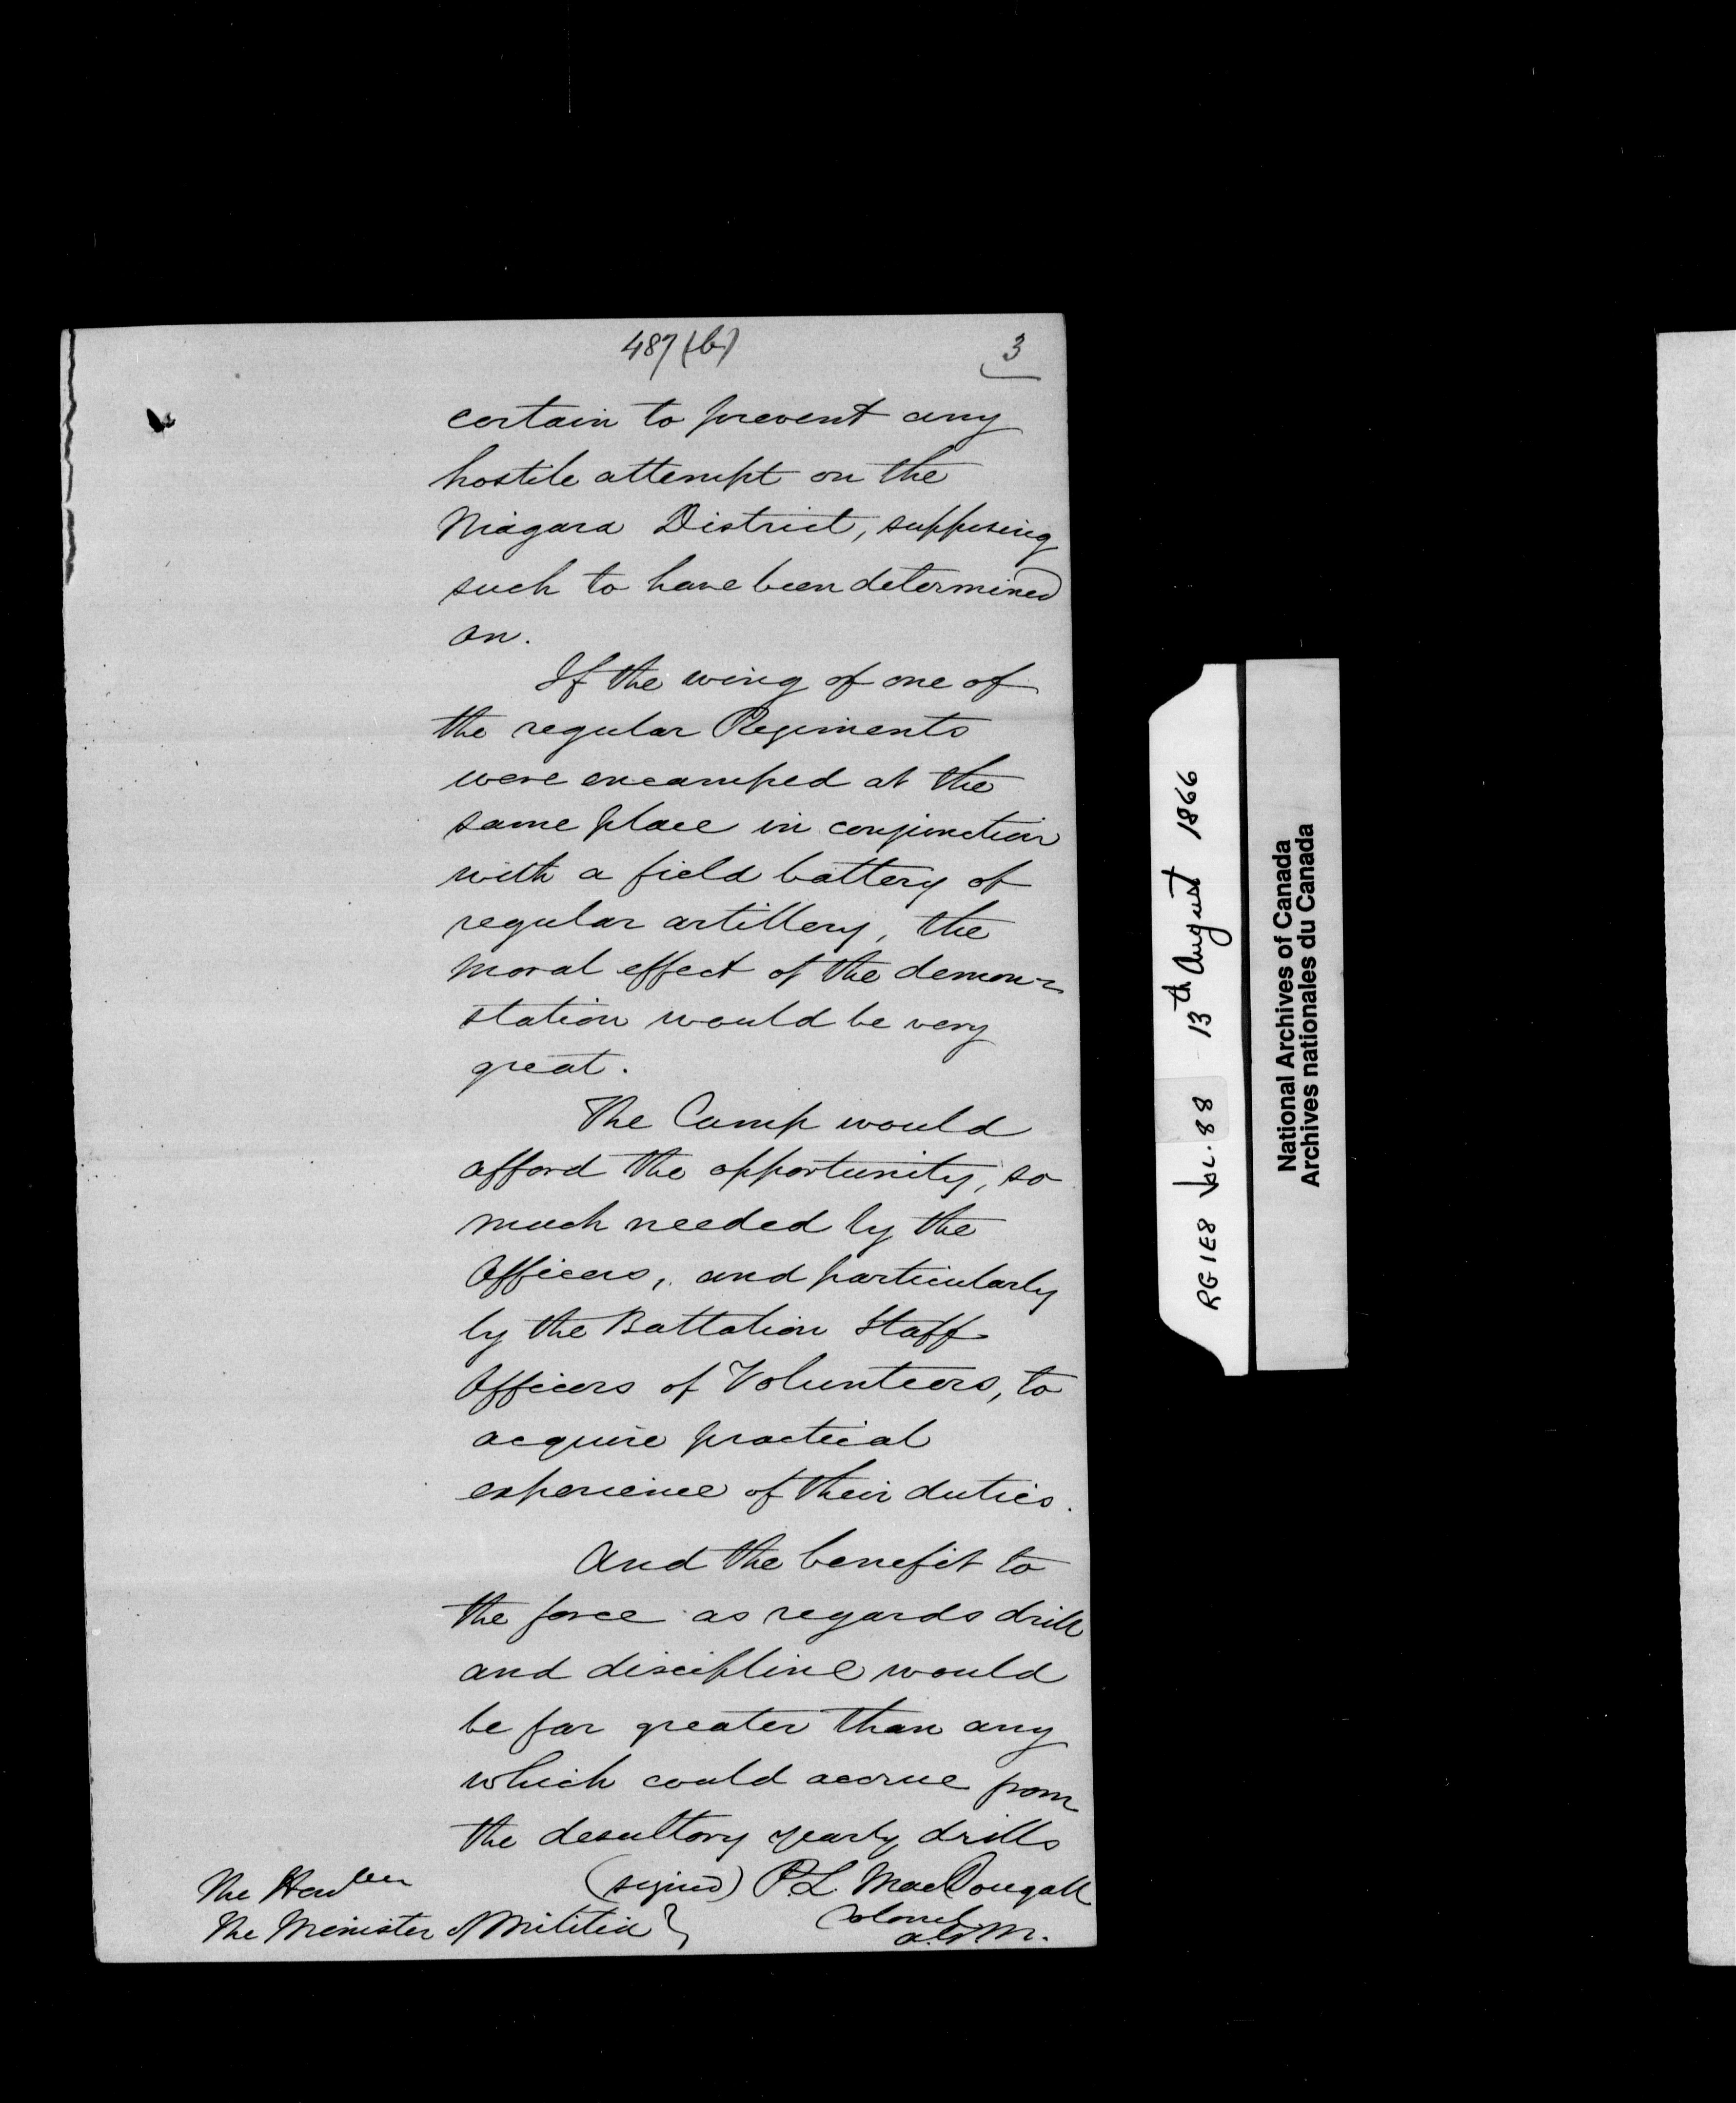 487 (b)
3
certain to prevent any
hostile attempt on the
Niagara District, supposing
such to have been determined
on.
If the wing of one of
the regular Regiments
were encamped at the
same place in conjunction
with a field battery of
regular artillery, the
moral effect of the demon-
station would be very
great.
The Camp would
afford the opportunity, so
much needed by the
Officers, and particularly
by the Battalion Staff
Officers of Volunteers, to
acquire practical
experience of their duties.
And the benefit to
the force as regards drill
and discipline would
be far greater than any
which could accrue from
the desultory yearly drills
(signed) P.L. MacDougall
Colonel
A.G.M.
The Honble
The Minister of Militia
RG 1E8 Vol. 88 13th August 1866
National Archives of Canada
Archives nationales du Canada